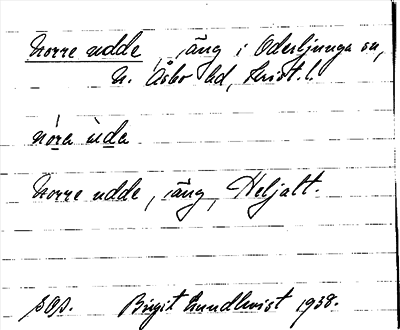 Norre udde, äng i Oderljunga sn,
N. Åsbo hd, Krist. l.
nóra ùda
Norre udde, äng, Heljalt.
sOp. Birgit Lundkvist 1938.